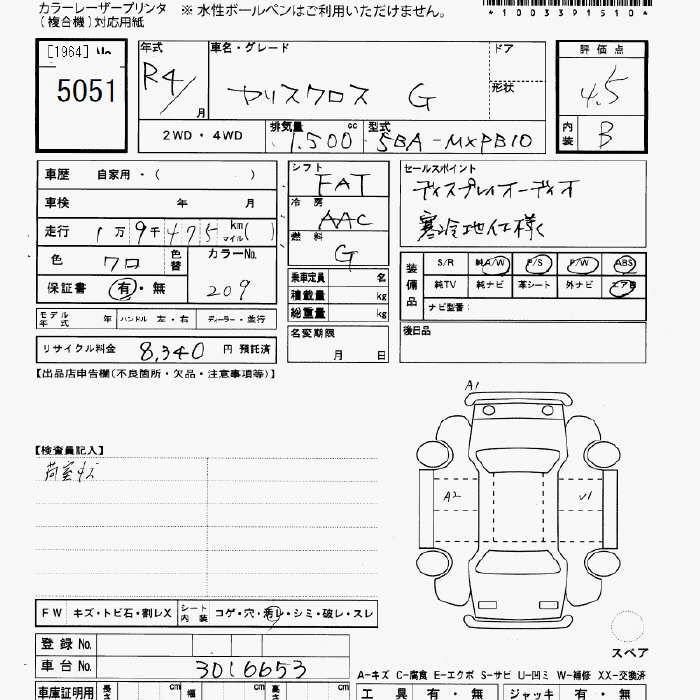 カラーレーザープリンタ
(複合機)対応用紙
※ 水性ボールペンはご利用いただけません。
*1003391510*
[1964] No.
5051
年式
R4/
月
車名・グレード
ヤリスクロス G
ドア
形状
評価点
4.5
内装
B
2WD・4WD
排気量
1.500
cc
型式
5BA-MXPB10
車歴 自家用・( )
車検 年 月
走行 1万9千475 km マイル( )
色
クロ
色替
カラーNo.
209
保証書 有・無
モデル年式 年 ハンドル 左・右 ディーラー・並行
リサイクル料金 8,340 円 預託済
シフト
FAT
冷房
AAC
燃料
G
乗車定員 名
積載量 kg
総重量 kg
名変期限
月 日
セールスポイント
ディスプレイオーディオ
寒冷地仕様
装備品
S/R 純A/W P/S P/W ABS
純TV 純ナビ 革シート 外ナビ エアB
ナビ型番:
後日品
【出品店申告欄(不良箇所・欠品・注意事項等)】
【検査員記入】
荷室キズ
A1
A2
U1
スペア
FW キズ・トビ石・割レX
シート内装 コゲ・穴・汚レ・シミ・破レ・スレ
登録No.
車台No. 3016653
車庫証明用 長さ cm 幅 cm 高さ cm
A-キズ C-腐食 E-エクボ S-サビ U-凹ミ W-補修 XX-交換済
工具 有・無 ジャッキ 有・無